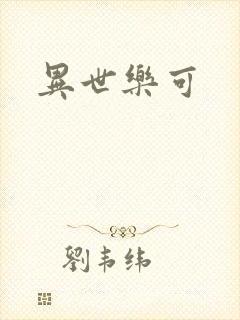 異世樂可
劉韦纬